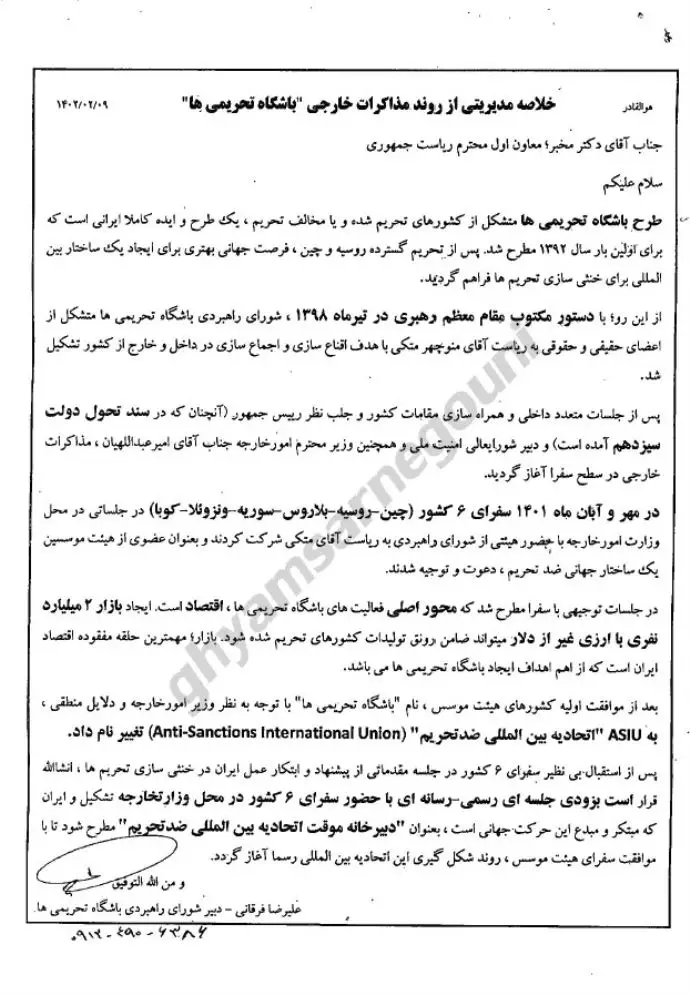 هوالقادر
خلاصه مدیریتی از روند مذاکرات خارجی "باشگاه تحریمی ها"
۱۴۰۲/۰۲/۰۹
جناب آقای دکتر مخبر؛ معاون اول محترم ریاست جمهوری
سلام علیکم
طرح باشگاه تحریمی ها متشکل از کشورهای تحریم شده و یا مخالف تحریم ، یک طرح و ایده کاملا ایرانی است که
برای اولین بار سال ۱۳۹۲ مطرح شد. پس از تحریم گسترده روسیه و چین ، فرصت جهانی بهتری برای ایجاد یک ساختار بین
المللی برای خنثی سازی تحریم ها فراهم گردید.
از این رو؛ با دستور مکتوب مقام معظم رهبری در تیرماه ۱۳۹۸ ، شورای راهبردی باشگاه تحریمی ها متشکل از
اعضای حقیقی و حقوقی به ریاست آقای منوچهر متکی با هدف اقناع سازی و اجماع سازی در داخل و خارج از کشور تشکیل
شد.
پس از جلسات متعدد داخلی و همراه سازی مقامات کشور و جلب نظر رییس جمهور (آنچنان که در سند تحول دولت
سیزدهم آمده است) و دبیر شورایعالی امنیت ملی و همچنین وزیر محترم امورخارجه جناب آقای امیرعبداللهیان ، مذاکرات
خارجی در سطح سفرا آغاز گردید.
در مهر و آبان ماه ۱۴۰۱ سفرای ۶ کشور (چین-روسیه-بلاروس-سوریه-ونزوئلا-کوبا) در جلساتی در محل
وزارت امورخارجه با حضور هیئتی از شورای راهبردی به ریاست آقای متکی شرکت کردند و بعنوان عضوی از هیئت موسسین
یک ساختار جهانی ضد تحریم ، دعوت و توجیه شدند.
در جلسات توجیهی با سفرا مطرح شد که محور اصلی فعالیت های باشگاه تحریمی ها ، اقتصاد است. ایجاد بازار ۲ میلیارد
نفری با ارزی غیر از دلار میتواند ضامن رونق تولیدات کشورهای تحریم شده شود. بازار؛ مهمترین حلقه مفقوده اقتصاد
ایران است که از اهم اهداف ایجاد باشگاه تحریمی ها می باشد.
بعد از موافقت اولیه کشورهای هیئت موسس ، نام "باشگاه تحریمی ها" با توجه به نظر وزیر امورخارجه و دلایل منطقی ،
به ASIU "اتحادیه بین المللی ضدتحریم" (Anti-Sanctions International Union) تغییر نام داد.
پس از استقبال بی نظیر سفرای ۶ کشور در جلسه مقدماتی از پیشنهاد و ابتکار عمل ایران در خنثی سازی تحریم ها ، انشاالله
قرار است بزودی جلسه ای رسمی-رسانه ای با حضور سفرای ۶ کشور در محل وزارتخارجه تشکیل و ایران
که مبتکر و مبدع این حرکت جهانی است ، بعنوان "دبیرخانه موقت اتحادیه بین المللی ضدتحریم" مطرح شود تا با
موافقت سفرای هیئت موسس ، روند شکل گیری این اتحادیه بین المللی رسما آغاز گردد.
و من الله التوفیق
علیرضا فرقانی - دبیر شورای راهبردی باشگاه تحریمی ها
ghyamsarnegouni